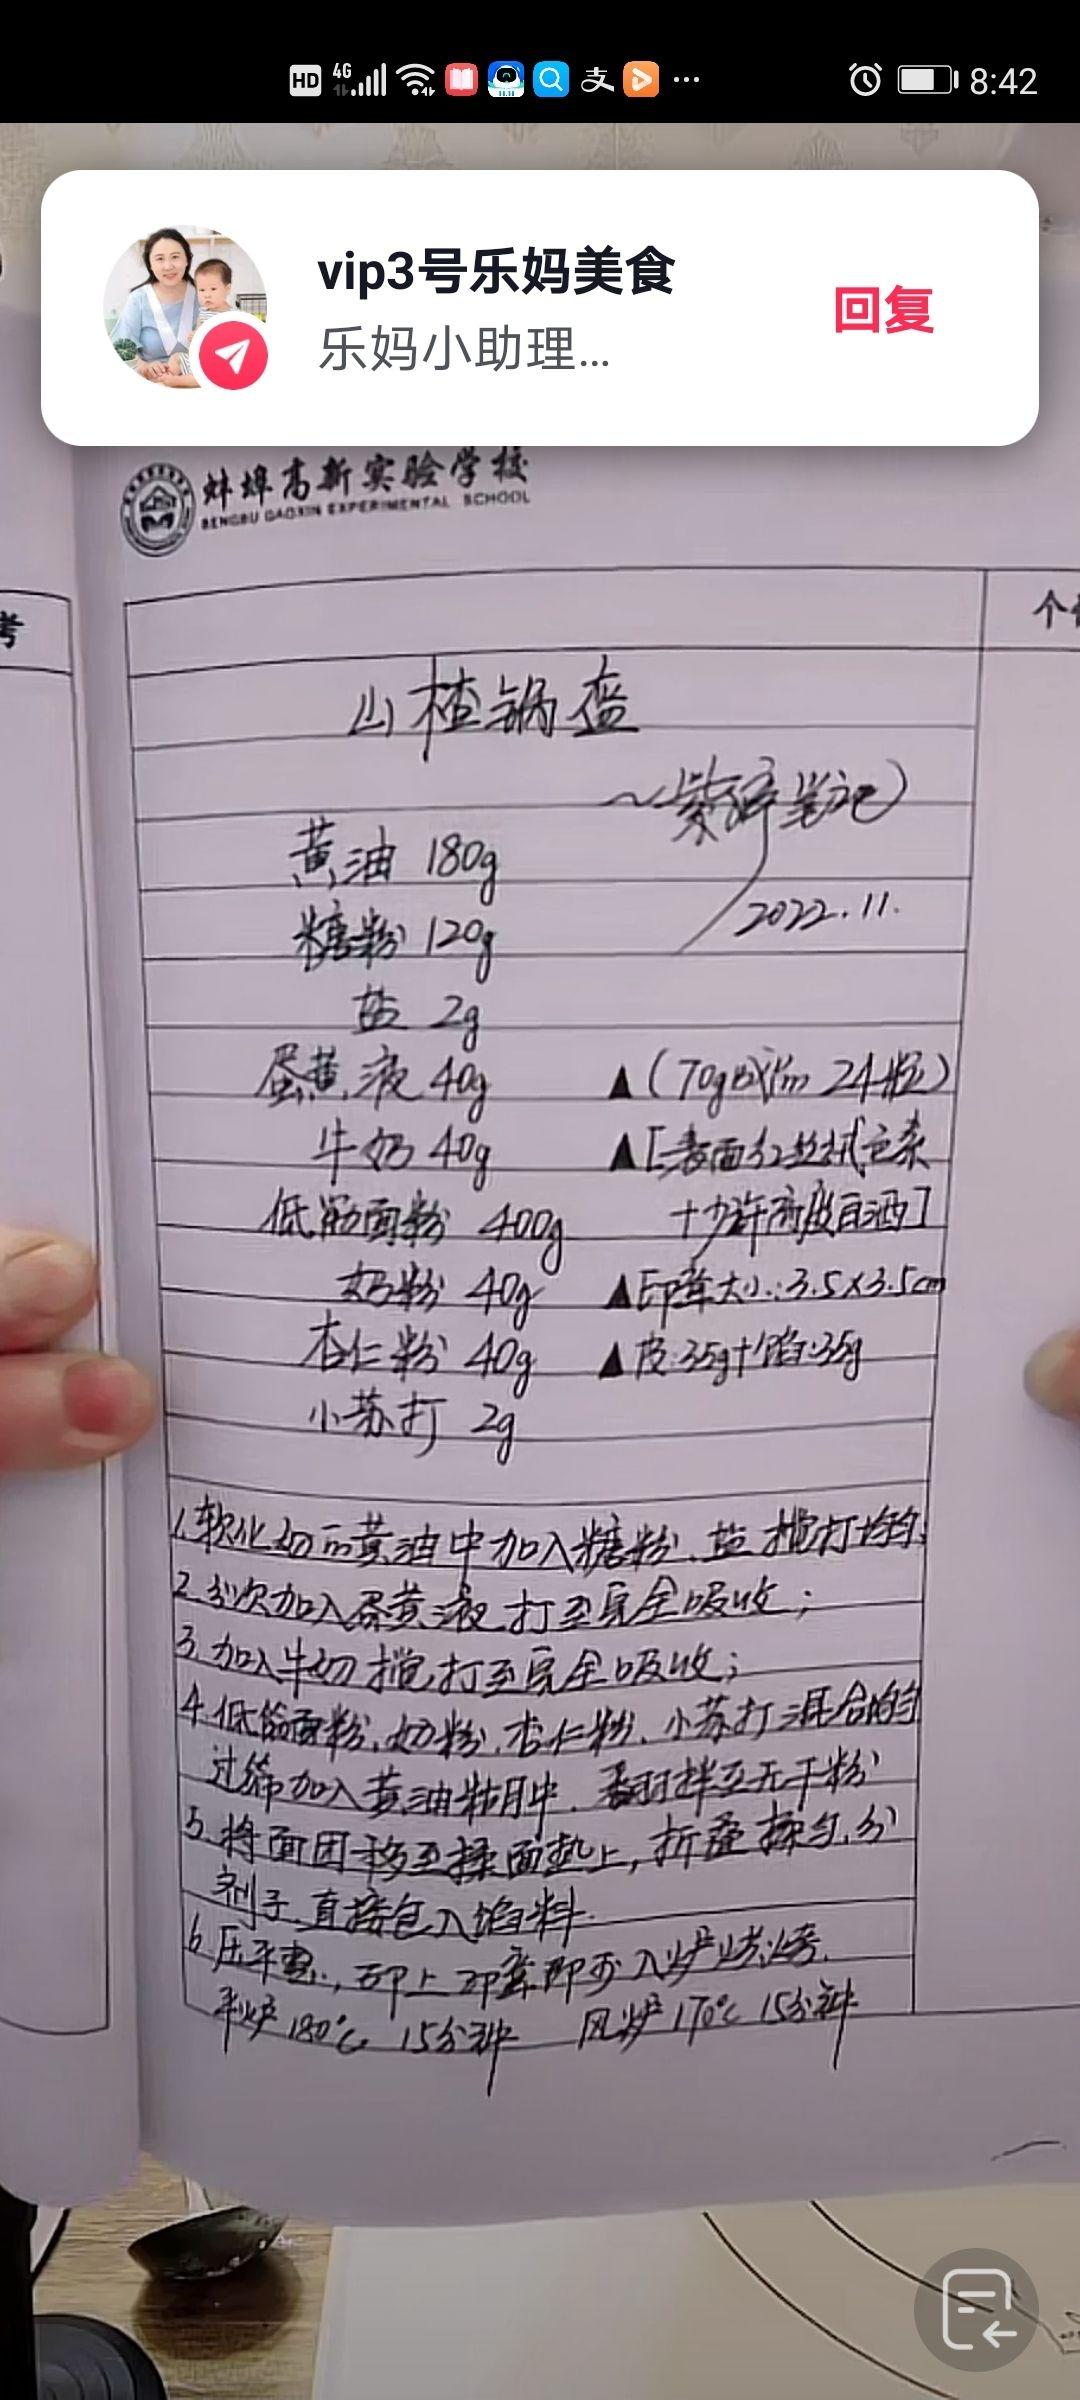 HD 4G 支 ... 8:42
vip3号乐妈美食
回复
乐妈小助理...
蚌埠高新实验学校
BENGBU GAOXIN EXPERIMENTAL SCHOOL
考
个
山楂锅盔
笔记
黄油 180g
2022.11.
糖粉 120g
盐 2g
蛋黄液 40g ▲(70g 24粒)
牛奶 40g ▲[表面红丝绒色素
低筋面粉 400g +少许高度白酒]
奶粉 40g ▲印章大小:3.5×3.5cm
杏仁粉 40g ▲皮:35g+馅:35g
小苏打 2g
1.软化的黄油中加入糖粉、盐 搅打均匀;
2.分次加入蛋黄液 打至完全吸收;
3.加入牛奶搅打至完全吸收;
4.低筋面粉、奶粉、杏仁粉、小苏打混合均匀
过筛加入黄油糊中、翻拌至无干粉
5.将面团移至揉面垫上,折叠揉匀,分
剂子、直接包入馅料.
6.压平整,印上印章即可入炉烘烤.
平炉180℃ 15分钟 风炉170℃ 15分钟